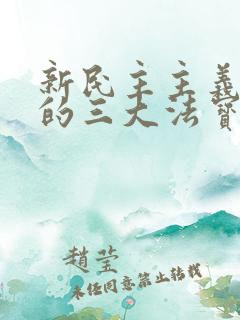 新民主主义
的三大法宝
赵莹
未经同意禁止转载